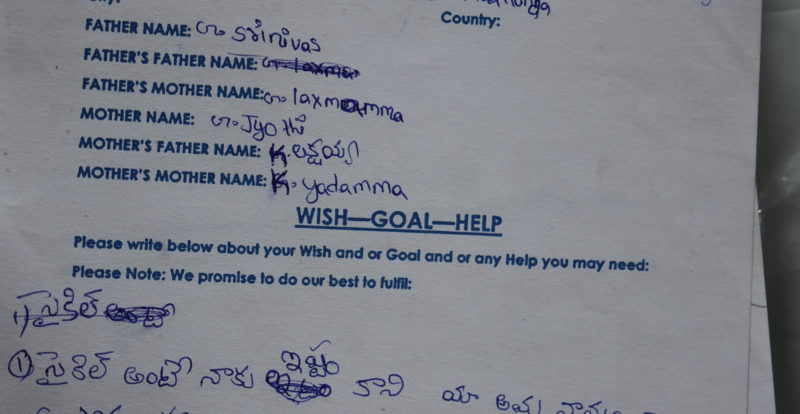 Country:
FATHER NAME: గా. Sరినివas
FATHER'S FATHER NAME:
FATHER'S MOTHER NAME: గా. laxmamma
MOTHER NAME: గా. Jyoతి
MOTHER'S FATHER NAME: K. లక్ష్మయ్య
MOTHER'S MOTHER NAME: K. yadamma
WISH—GOAL—HELP
Please write below about your Wish and or Goal and or any Help you may need:
Please Note: We promise to do our best to fulfil:
1) సైకిల్
① సైకిల్ అంటే నాకు ఇష్టం కాని మా అమ్మ